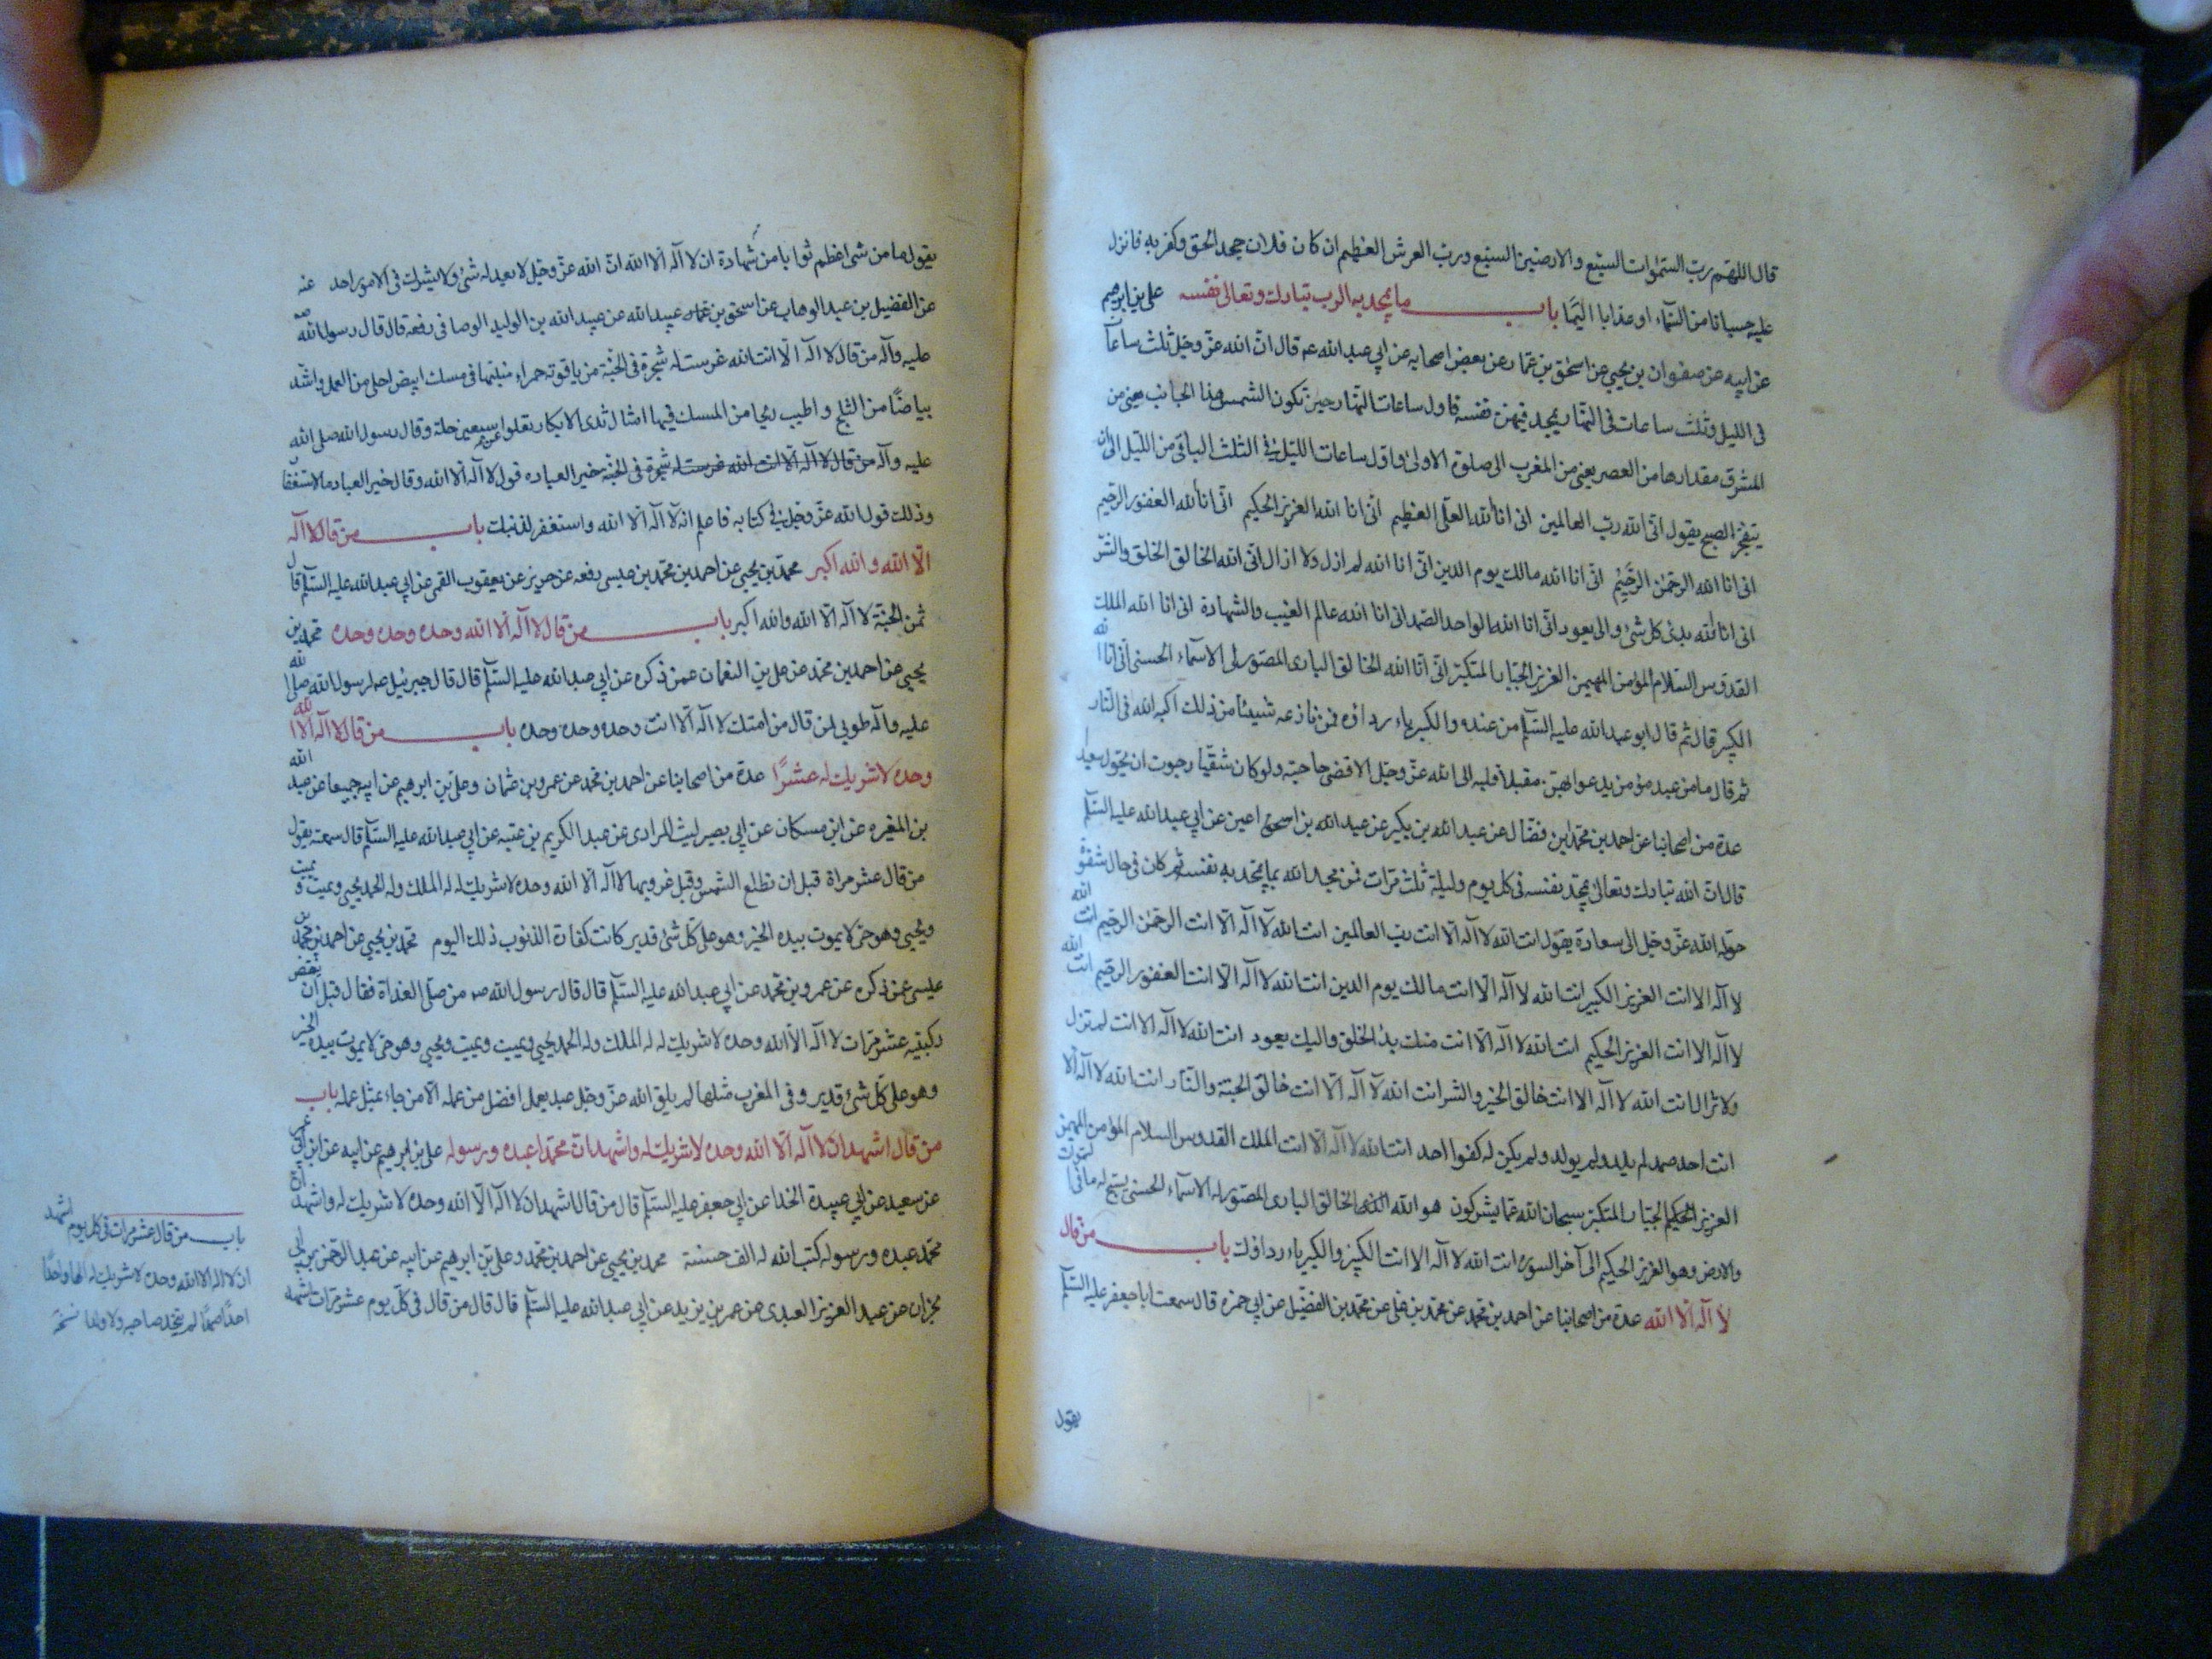 قال اللهم رب السموات السبع والارضين السبع ورب العرش العظيم ان كان فلان جحد الحق وكفر به فانزل
عليه حسبانا من السماء او عذابا اليما باب ما يمجد به الرب تبارك وتعالى نفسه على بن ابرهيم
عن ابيه عن صفوان بن يحيى عن اسحق بن عمار عن بعض اصحابه عن ابي عبد الله عه قال ان الله عز وجل ثلث ساعات
فى الليل وثلث ساعات فى النهار يمجد فيهن نفسه فاول ساعات النهار حين تكون الشمس هذا الجانب يعنى من
المشرق مقدارها من العصر يعنى من المغرب الى صلوة الاولى واول ساعات الليل فى الثلث الباقى من الليل الى ان
ينفجر الصبح يقول انى الله رب العالمين انى انا الله العلى العظيم انى انا الله العزيز الحكيم انى انا الله الغفور الرحيم
انى انا الله الرحمن الرحيم انى انا الله مالك يوم الدين انى انا الله لم ازل ولا ازال انى الله الخالق الخلق والشر
انى انا الله بدئ كل شئ والى يعود انى انا الله الواحد الصمد انى انا الله عالم الغيب والشهادة انى انا الله الملك
القدوس السلام المؤمن المهيمن العزيز الجبار المتكبر انى انا الله الخالق البارى المصور لى الاسماء الحسنى انى انا الله
الكبير قال ثم قال ابو عبد الله عليه السلم من عنده والكبرياء رداؤه فمن نازعه شيئا من ذلك اكبه الله فى النار
ثم قال ما من عبد مؤمن يدعو بهن مقبلا قلبه الى الله عز وجل الا قضى حاجته ولو كان شقيا رجوت ان يحول سعيدا
عدة من اصحابنا عن احمد بن محمد ابن فضال عن عبد الله بن بكير عن عبد الله بن اعين عن ابي عبد الله عليه السلم
قال ان الله تبارك وتعالى يمجد نفسه فى كل يوم وليلة ثلث مرات فمن مجد الله بما يمجد به نفسه ثم كان فى حال شقوة
حوله الله عز وجل الى سعادة يقول انت الله لا اله الا انت رب العالمين انت الله لا اله الا انت الرحمن الرحيم انت الله
لا اله الا انت العزيز الكبير انت الله لا اله الا انت مالك يوم الدين انت الله لا اله الا انت الغفور الرحيم انت الله
لا اله الا انت العزيز الحكيم انت الله لا اله الا انت منك بدؤ الخلق واليك يعود انت الله لا اله الا انت لم تزل
ولا تزال انت الله لا اله الا انت خالق الخير والشر انت الله لا اله الا انت خالق الجنة والنار انت الله لا اله الا
انت احد صمد لم يلد ولم يولد ولم يكن له كفوا احد انت الله لا اله الا انت الملك القدوس السلام المؤمن المهيمن
العزيز الحكيم الجبار المتكبر سبحان الله عما يشركون هو الله الخالق البارى المصور له الاسماء الحسنى يسبح له ما فى السموت
والارض وهو العزيز الحكيم الى آخر السورة انت الله لا اله الا انت الكبير والكبرياء رداؤك باب من قال
لا اله الا الله عدة من اصحابنا عن احمد بن محمد عن محمد بن على عن محمد بن الفضيل عن ابي حمزه قال سمعت ابا جعفر عليه السلم
يقول
يقول ما من شئ اعظم ثوابا من شهادة ان لا اله الا الله ان الله عز وجل لا يعدله شئ ولا يشرك فى الامور احد عنه
عن الفضيل بن عبد الوهاب عن اسحق بن عبيد الله عن عبيد الله بن الوليد الوصافى رفعه قال قال رسول الله صه
عليه وآله من قال لا اله الا انت الله غرست له شجرة فى الجنة من ياقوته حمراء منبتها فى مسك ابيض احلى من العسل واشد
بياضا من الثلج واطيب ريحا من المسك فيها امثال ثدى الابكار تعلوا عن سبعين حلة وقال رسول الله صلى الله
عليه وآله من قال لا اله الا انت الله غرست له شجرة فى الجنة خير العباده قول لا اله الا الله وقال خير العباده الاستغفار
وذلك قول الله عز وجل فى كتابه فاعلم انه لا اله الا الله واستغفر لذنبك باب من قال لا اله
الا الله والله اكبر محمد بن يحيى عن احمد بن محمد بن عيسى رفعه عن حريز عن يعقوب القمى عن ابي عبد الله عليه السلم قال
ثمن الجنة لا اله الا الله والله اكبر باب من قال لا اله الا الله وحده وحده وحده محمد بن
يحيى عن احمد بن محمد عن على بن النعمان عمن ذكره عن ابي عبد الله عليه السلم قال قال جبرئيل عه لرسول الله صلى الله
عليه وآله طوبى لمن قال من امتك لا اله الا انت وحده وحده وحده باب من قال لا اله الا الله
وحده لا شريك له عشرًا عدة من اصحابنا عن احمد بن محمد عن عمرو بن عثمان وعلى بن ابرهيم عن ابيه جميعا عن عبد الله
بن المغيره عن ابن مسكان عن ابي بصير ليث المرادى عن عبد الكريم بن عتبه عن ابي عبد الله عليه السلم قال سمعته يقول
من قال عشر مراة قبل ان تطلع الشمس وقبل غروبها لا اله الا الله وحده لا شريك له له الملك وله الحمد يحيى ويميت ويميت
ويحيى وهو حى لا يموت بيده الخير وهو على كل شئ قدير كانت كفارة الذنوب ذلك اليوم محمد بن يحيى عن احمد بن محمد بن
عيسى عمن ذكره عن عمرو بن محمد عن ابي عبد الله عليه السلم قال قال رسول الله صه من صلى الغداة فقال قبل ان ينقض
ركبتيه عشر مرات لا اله الا الله وحده لا شريك له له الملك وله الحمد يحيى ويميت ويميت ويحيى وهو حى لا يموت بيده الخير
وهو على كل شئ قدير وفى المغرب مثلها لم يلق الله عز وجل عبد بعمل افضل من عمله الا من جاء بمثل عمله باب
من قال اشهد ان لا اله الا الله وحده لا شريك له واشهد ان محمدا عبده ورسوله على بن ابرهيم عن ابيه عن ابن ابي عمير
عن سعيد عن ابي عبيدة الحذا عن ابي جعفر عليه السلم قال من قال اشهد ان لا اله الا الله وحده لا شريك له واشهد ان
محمدا عبده ورسوله كتب الله له الف حسنة محمد بن يحيى عن احمد بن محمد وعلى بن ابرهيم عن ابيه عن عبد الرحمن بن ابي
نجران عن عبد العزيز العبدى عن عمر بن يزيد عن ابي عبد الله عليه السلم قال قال من قال فى كل يوم عشر مرات اشهد
باب من قال عشر مرات فى كل يوم اشهد
ان لا اله الا الله وحده لا شريك له الها واحدا
احدا صمدا لم يتخذ صاحبه ولا ولدا نسخة